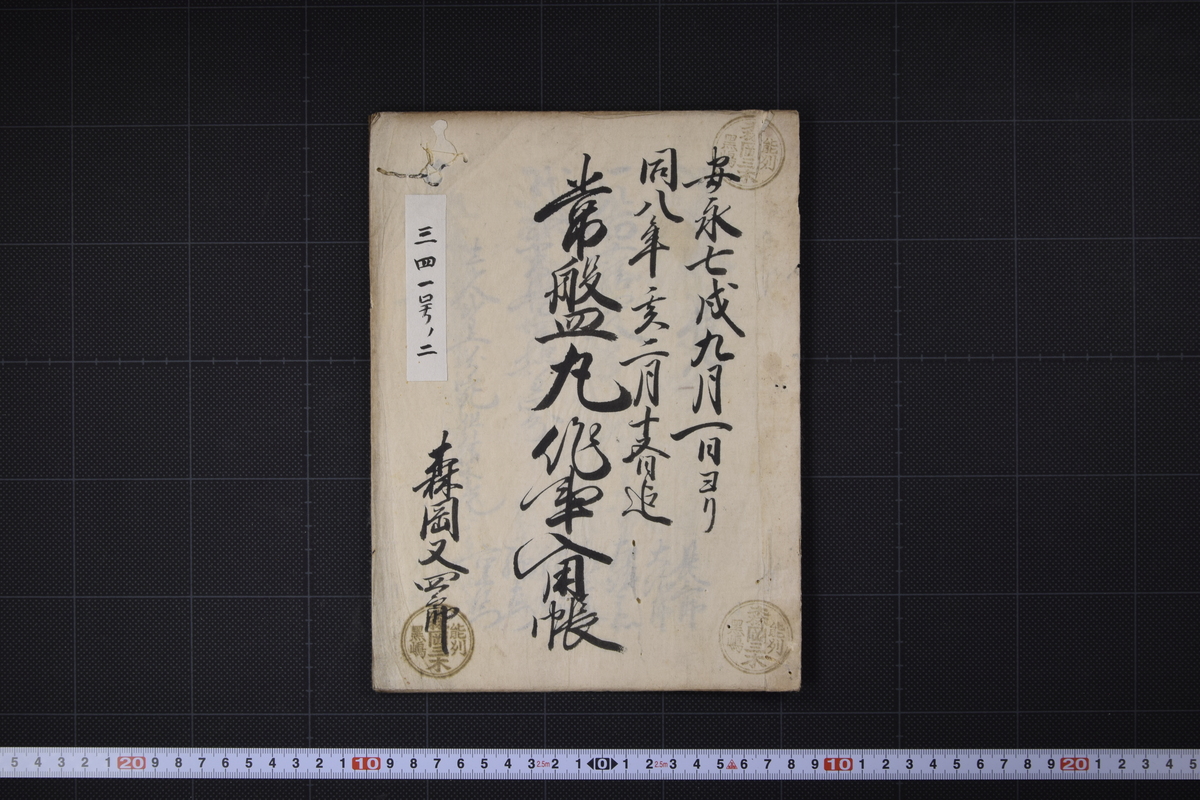 安永七戌九月一日ヨリ
同八年亥二月十五日迄
常盤丸作事入用帳
森岡又四郎
三四一号ノ二
能列
黒嶋
森岡三木
能列
黒嶋
森岡三木
能列
黒嶋
森岡三木
5 4 3 2 1 20 9 8 7 6 5 4 3 2 1 10 9 8 7 6 5 4 3 2.5m 2 1 0 1 2 2.5m 3 4 5 6 7 8 9 10 1 2 3 4 5 6 7 8 9 20 1 2 3 4 5